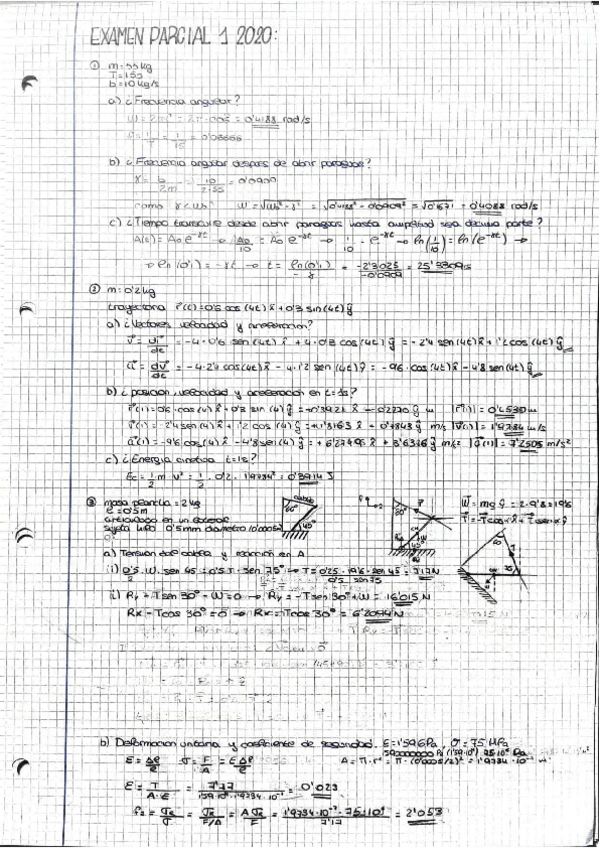 EXAMEN PARCIAL 1 2020:
① m=55kg
T=15s
b=10kg/s
a) ¿Frecuencia angular?
W = 2πf = 2π·0'06 = 0'4188 rad/s
f = 1/T = 1/15 = 0'06666
b) ¿Frecuencia angular despues de abrir paraguas?
γ = b/2m = 10/2·55 = 0'0909
como γ<ω₀ W = √(ω₀²-γ²) = √(0'4188²-0'0909²) = √0'1671 = 0'4088 rad/s
c) ¿Tiempo transcurre desde abrir paraguas hasta amplitud sea decima parte?
A(t) = A₀e^-γt → A₀/10 = A₀e^-γt → 1/10 = e^-γt → ln(1/10) = ln(e^-γt) →
→ ln(0'1) = -γt → t = ln(0'1)/-γ = -2'3025/-0'0909 = 25'3309s
② m=0'2kg
trayectoria r(t)=0'6 cos(4t)x̂+0'3 sin(4t)ŷ
a) ¿Vectores velocidad y aceleracion?
v = dr/dt = -4·0'6 sen(4t)x̂ + 4·0'3 cos(4t)ŷ = -2'4 sen(4t)x̂+1'2 cos(4t)ŷ
a = dv/dt = -4·2'4 cos(4t)x̂ - 4·1'2 sen(4t)ŷ = -9'6 cos(4t)x̂-4'8 sen(4t)ŷ
b) ¿posicion, velocidad y aceleracion en t=1s?
r(1)=0'6·cos(4)x̂+0'3 sin(4)ŷ=-0'3921x̂-0'2270ŷ m |r(1)|=0'4530m
v(1)=-2'4sen(4)x̂+1'2 cos(4)ŷ=+1'8163x̂-0'7843ŷ m/s |v(1)|=1'9784m/s
a(1)=-9'6 cos(4)x̂-4'8sen(4)ŷ=+6'27495x̂+3'6326ŷ m/s² |a(1)|=7'2505m/s²
c) ¿Energia cinetica t=1s?
Ec=1/2 m·v²=1/2·0'2·1'9784²=0'3914J
③ masa plancha=2kg
l=0'5m
articulado en un extremo
sujeta hilo 0'5mm diametro (0'0005m)
60° 45°
W=mg ŷ=2·9'8=19'6
T=-Tcosαx̂+Tsenαŷ
a) Tension del cable y reaccion en A
i) 0'5/2·W·sen 45=0'5T·sen 75° → T=0'25·19'6·sen 45/0'5·sen75=7'17N
ii) Ry+Tsen30°-W=0 → Ry=-Tsen30°+W=16'015N
Rx-Tcos30°=0 → Rx=Tcos30°=6'2094N
b) Deformacion unitaria y coeficiente de seguridad. E=1'59GPa, σ=75MPa
ε=Δl/l σ=F/A=EΔl/l A=π·r²=π·(0'0005/2)²=1'9734·10⁻⁷ m²
ε=T/A·E=7'17/1'59·10⁹·1'9734·10⁻⁷=0'023